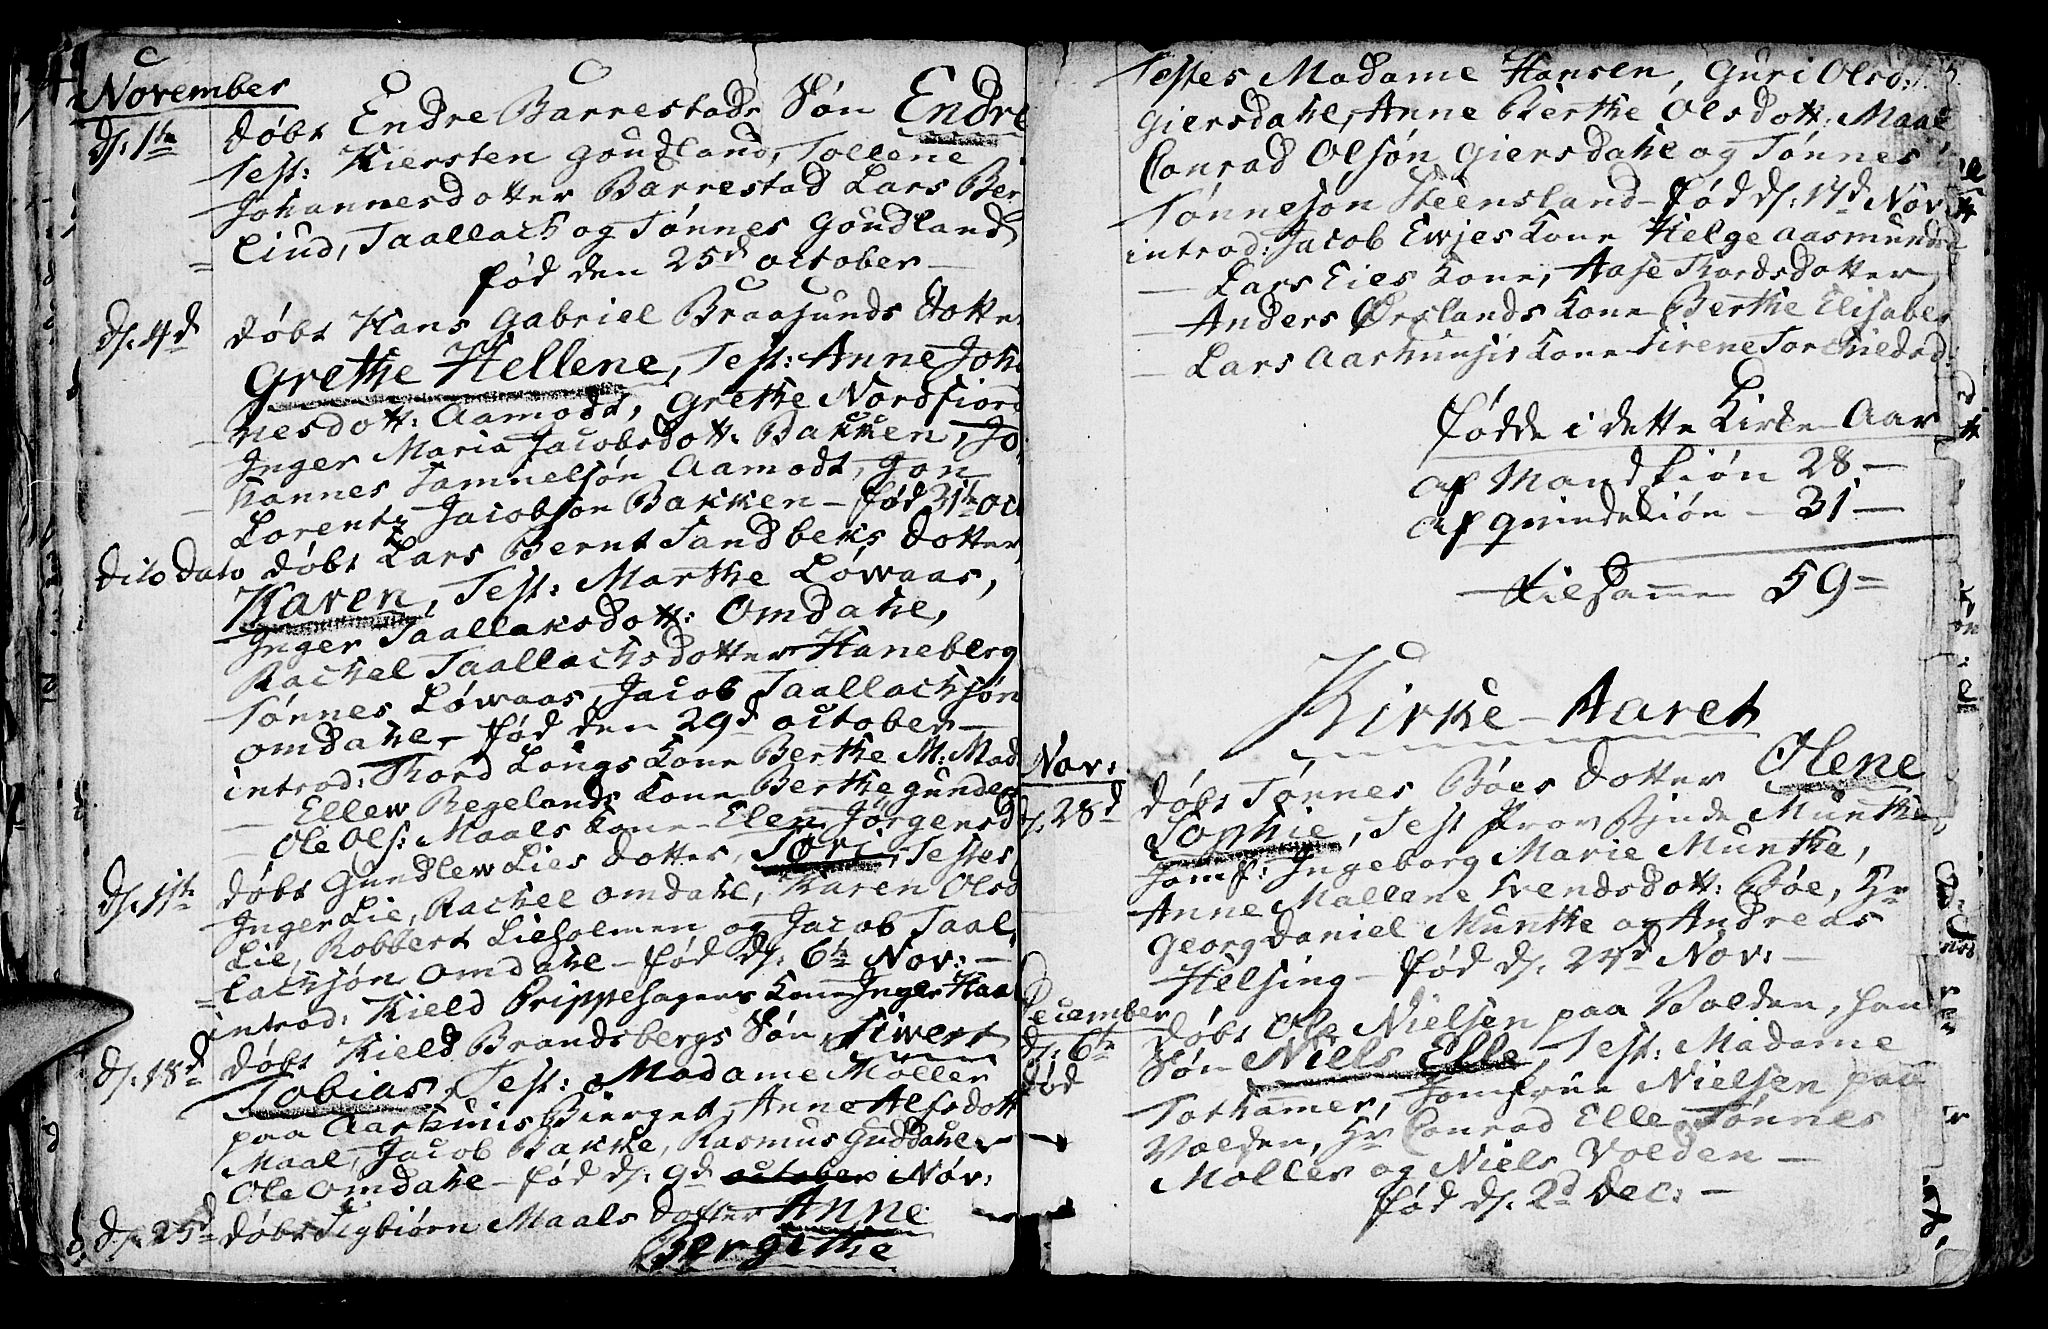 November
d/: 1te døbt Endre Barrestads Søn Endre
Test: Kiersten Goudland, Tollene
Johannesdotter Barrestad Lars Ber
Liud, Taallach og Tønnes Goudland
= fød den 25d october —
d/: 4d døbt Hans Gabriel Braasunds Dotter
Grethe Hellene, Test: Anne Joha
nesdott: Aamodt, Grethe Nordfiord
Inger Maria Jacobsdott: Bakken, Jo
hannes Samuelsøn Aamodt, Jan
Lorentz Jacobsøn Bakken — fød 31te oct
dito dato døbt Lars Bernt Sandbeks Dotter
Karen, Test: Marthe Løwaas,
Inger Taallaksdott: Omdahl,
Rachel Taallachsdotter Haneberg
Tønnes Løwaas, Jacob Taallachsøn
omdahl, — fød den 29d october —
introd: Thord Longs Kone Berthe M: Mad
— Ellew Regelands Kone Berthe Gunders
— Ole Ols: Maals Kone — Elen Jørgensd
d/: 11te døbt Gundlew Lies Dotter, Siri, Testes
Inger Lie, Rachel omdahl, Karen Olsd
Lie, Robbert Lieholmen og Jacob Taal,
= lachsøn Omdahl — fød d/: 6te Nov: —
introd: Kield Prippehagens Kone Inger Haa
d/: 18d døbt Kield Brandsbergs Søn, Siwert
Tobias, Test: Madame Møller
paa Aarhuus Bierget, Anne Alfsdott
Maal, Jacob Bakke, Rasmus Guddahl
Ole Omdahl — fød d/: 9d october Nov:
d/: 25d døbt Sigbiørn Maals Dotter Anne
Bergithe
Testes Madame Hansen, Guri Olsd:
Giersdahl, Anne Berthe Olsdott: Maal
Conrad Olsøn Giersdahl og Tønnes
Tønnesøn Steensland — fød d/: 17d Nov:
introd: Jacob Ewjes Kone Helge Aasmundsd
— Lars Eies Kone, Aase Thordsdotter
— Anders Ørslands Kone Berthe Elisabet
— Lars Aarhuusis Kone Sirene Torkieldsd:
fødde i dette Kirke-Aar
af Mandkiøn 28 —
af Qvindekiøn — 31 —
Tilsammen 59 =
Kirke-Aaret
Nov:
d/: 28d døbt Tønnes Bøes Dotter Olene
Sophie, Test Munthe,
Jomf: Ingeborg Marie Munthe,
Anne Mallene Svendsdott: Bøe, Hr
Georg Daniel Munthe og Andreas
Helsing — fød d/: 24d Nov: —
December
d/: 6te døbt Ole Nielsen paa Volden, hans
fød Søn Niels Elle, Test: Madame
Tothammer, Jomfrue Nielsen paa
Volden, Hr Conrad Elle, Tønnes
Møller og Niels Volden —
fød d/: 2d Dec: —